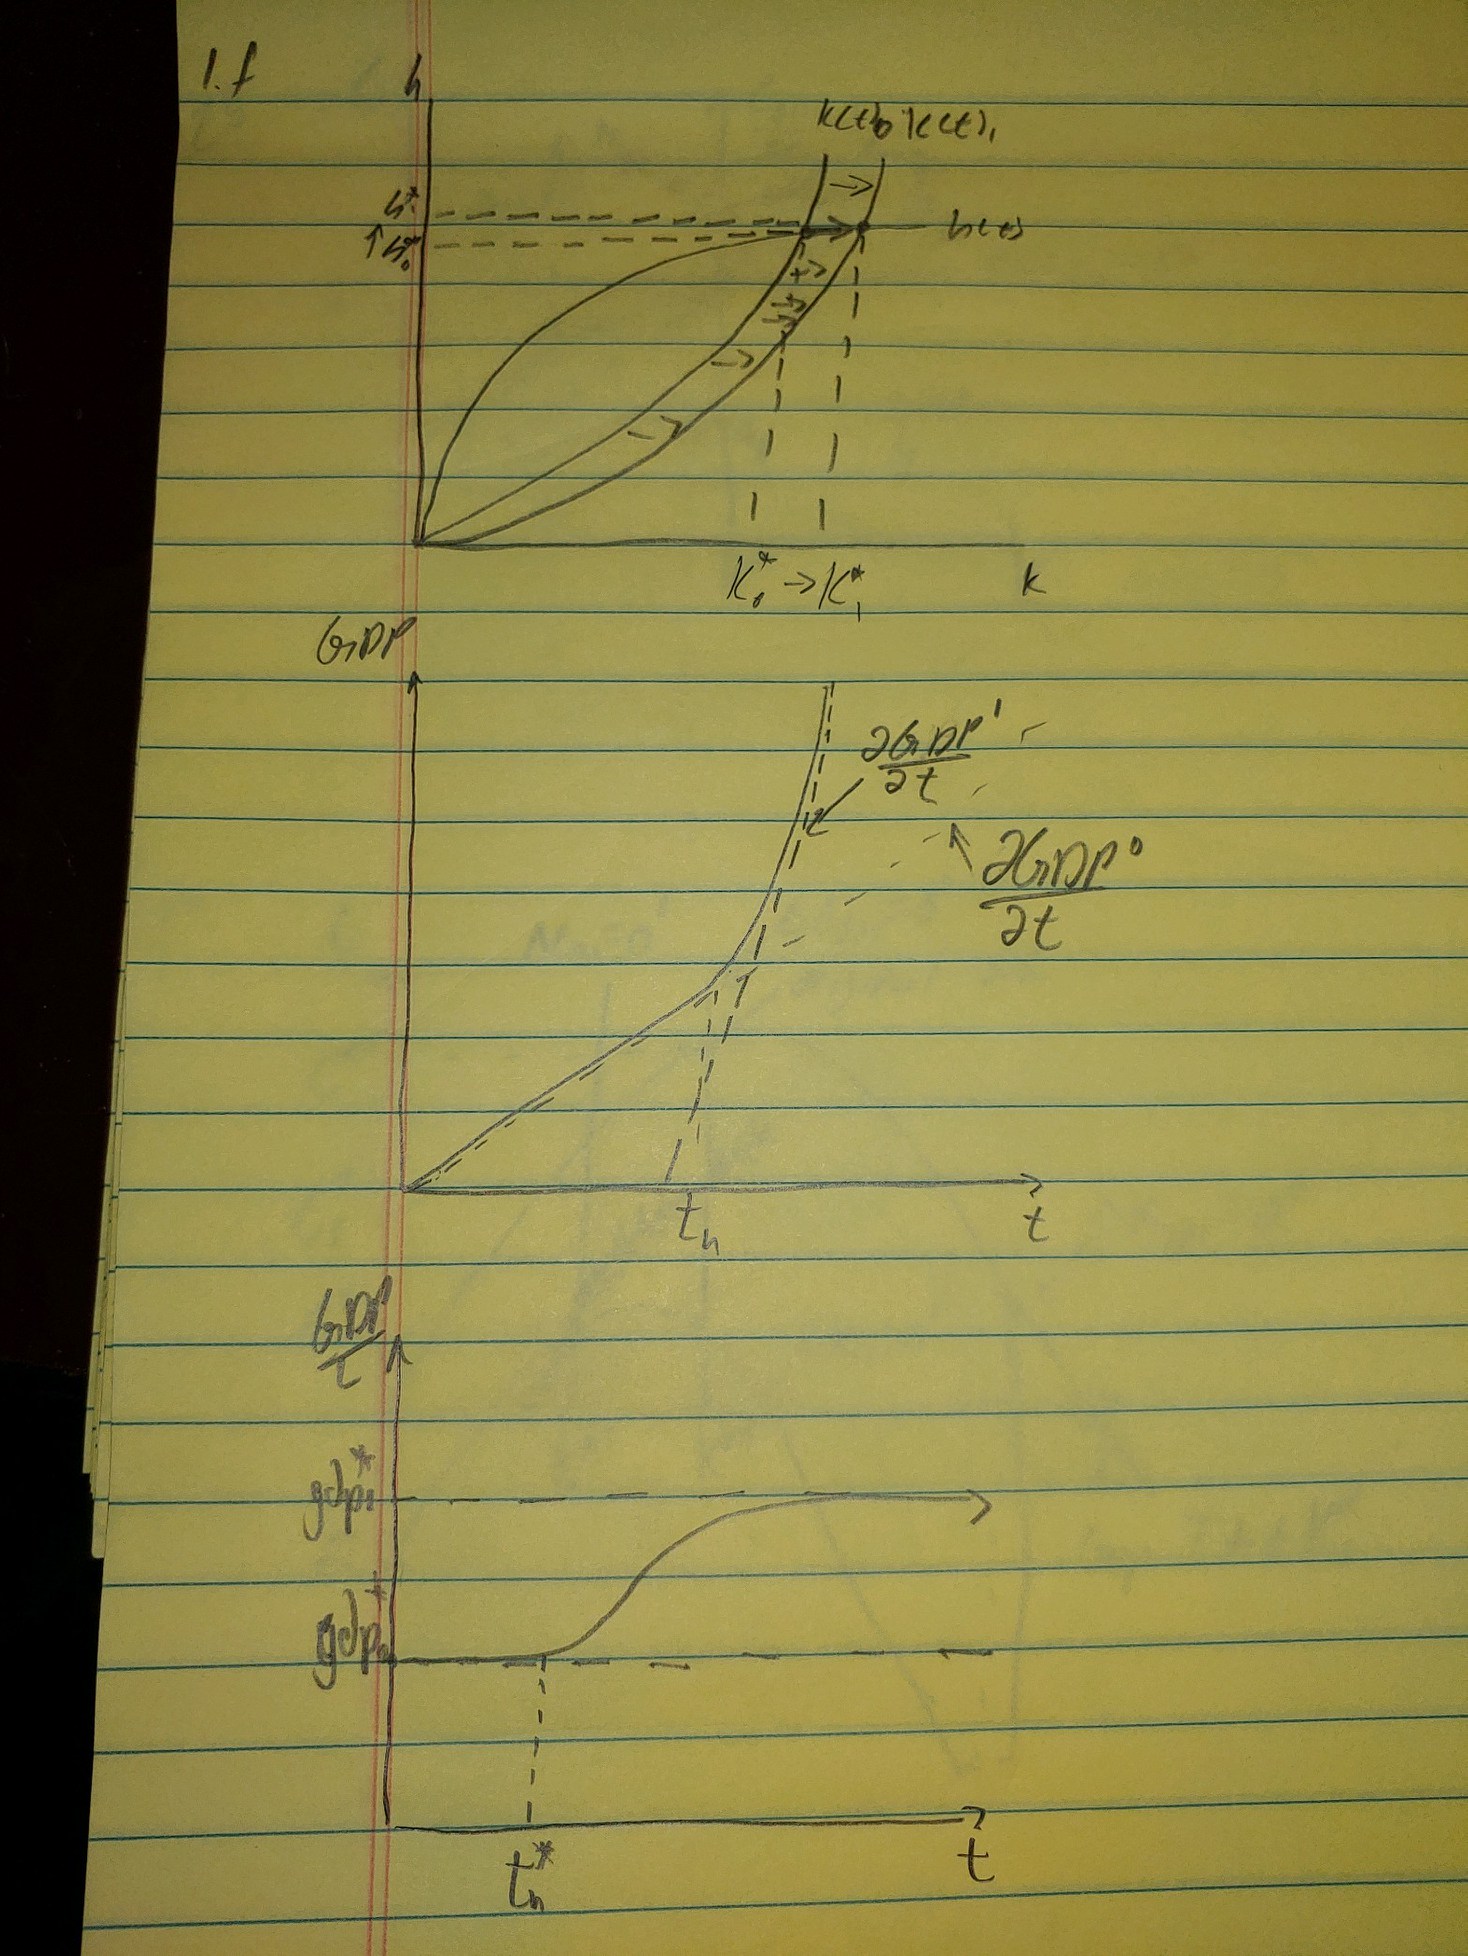 1.f
h
k(t)₀ k(t)₁
h*₁
↑ h*₀
h(t)
k*₀ → k*₁
k
GDP
∂GDP¹/∂t
∂GDP⁰/∂t
tₙ
t
GDP/L
gdp₁*
gdp₀*
tₙ*
t